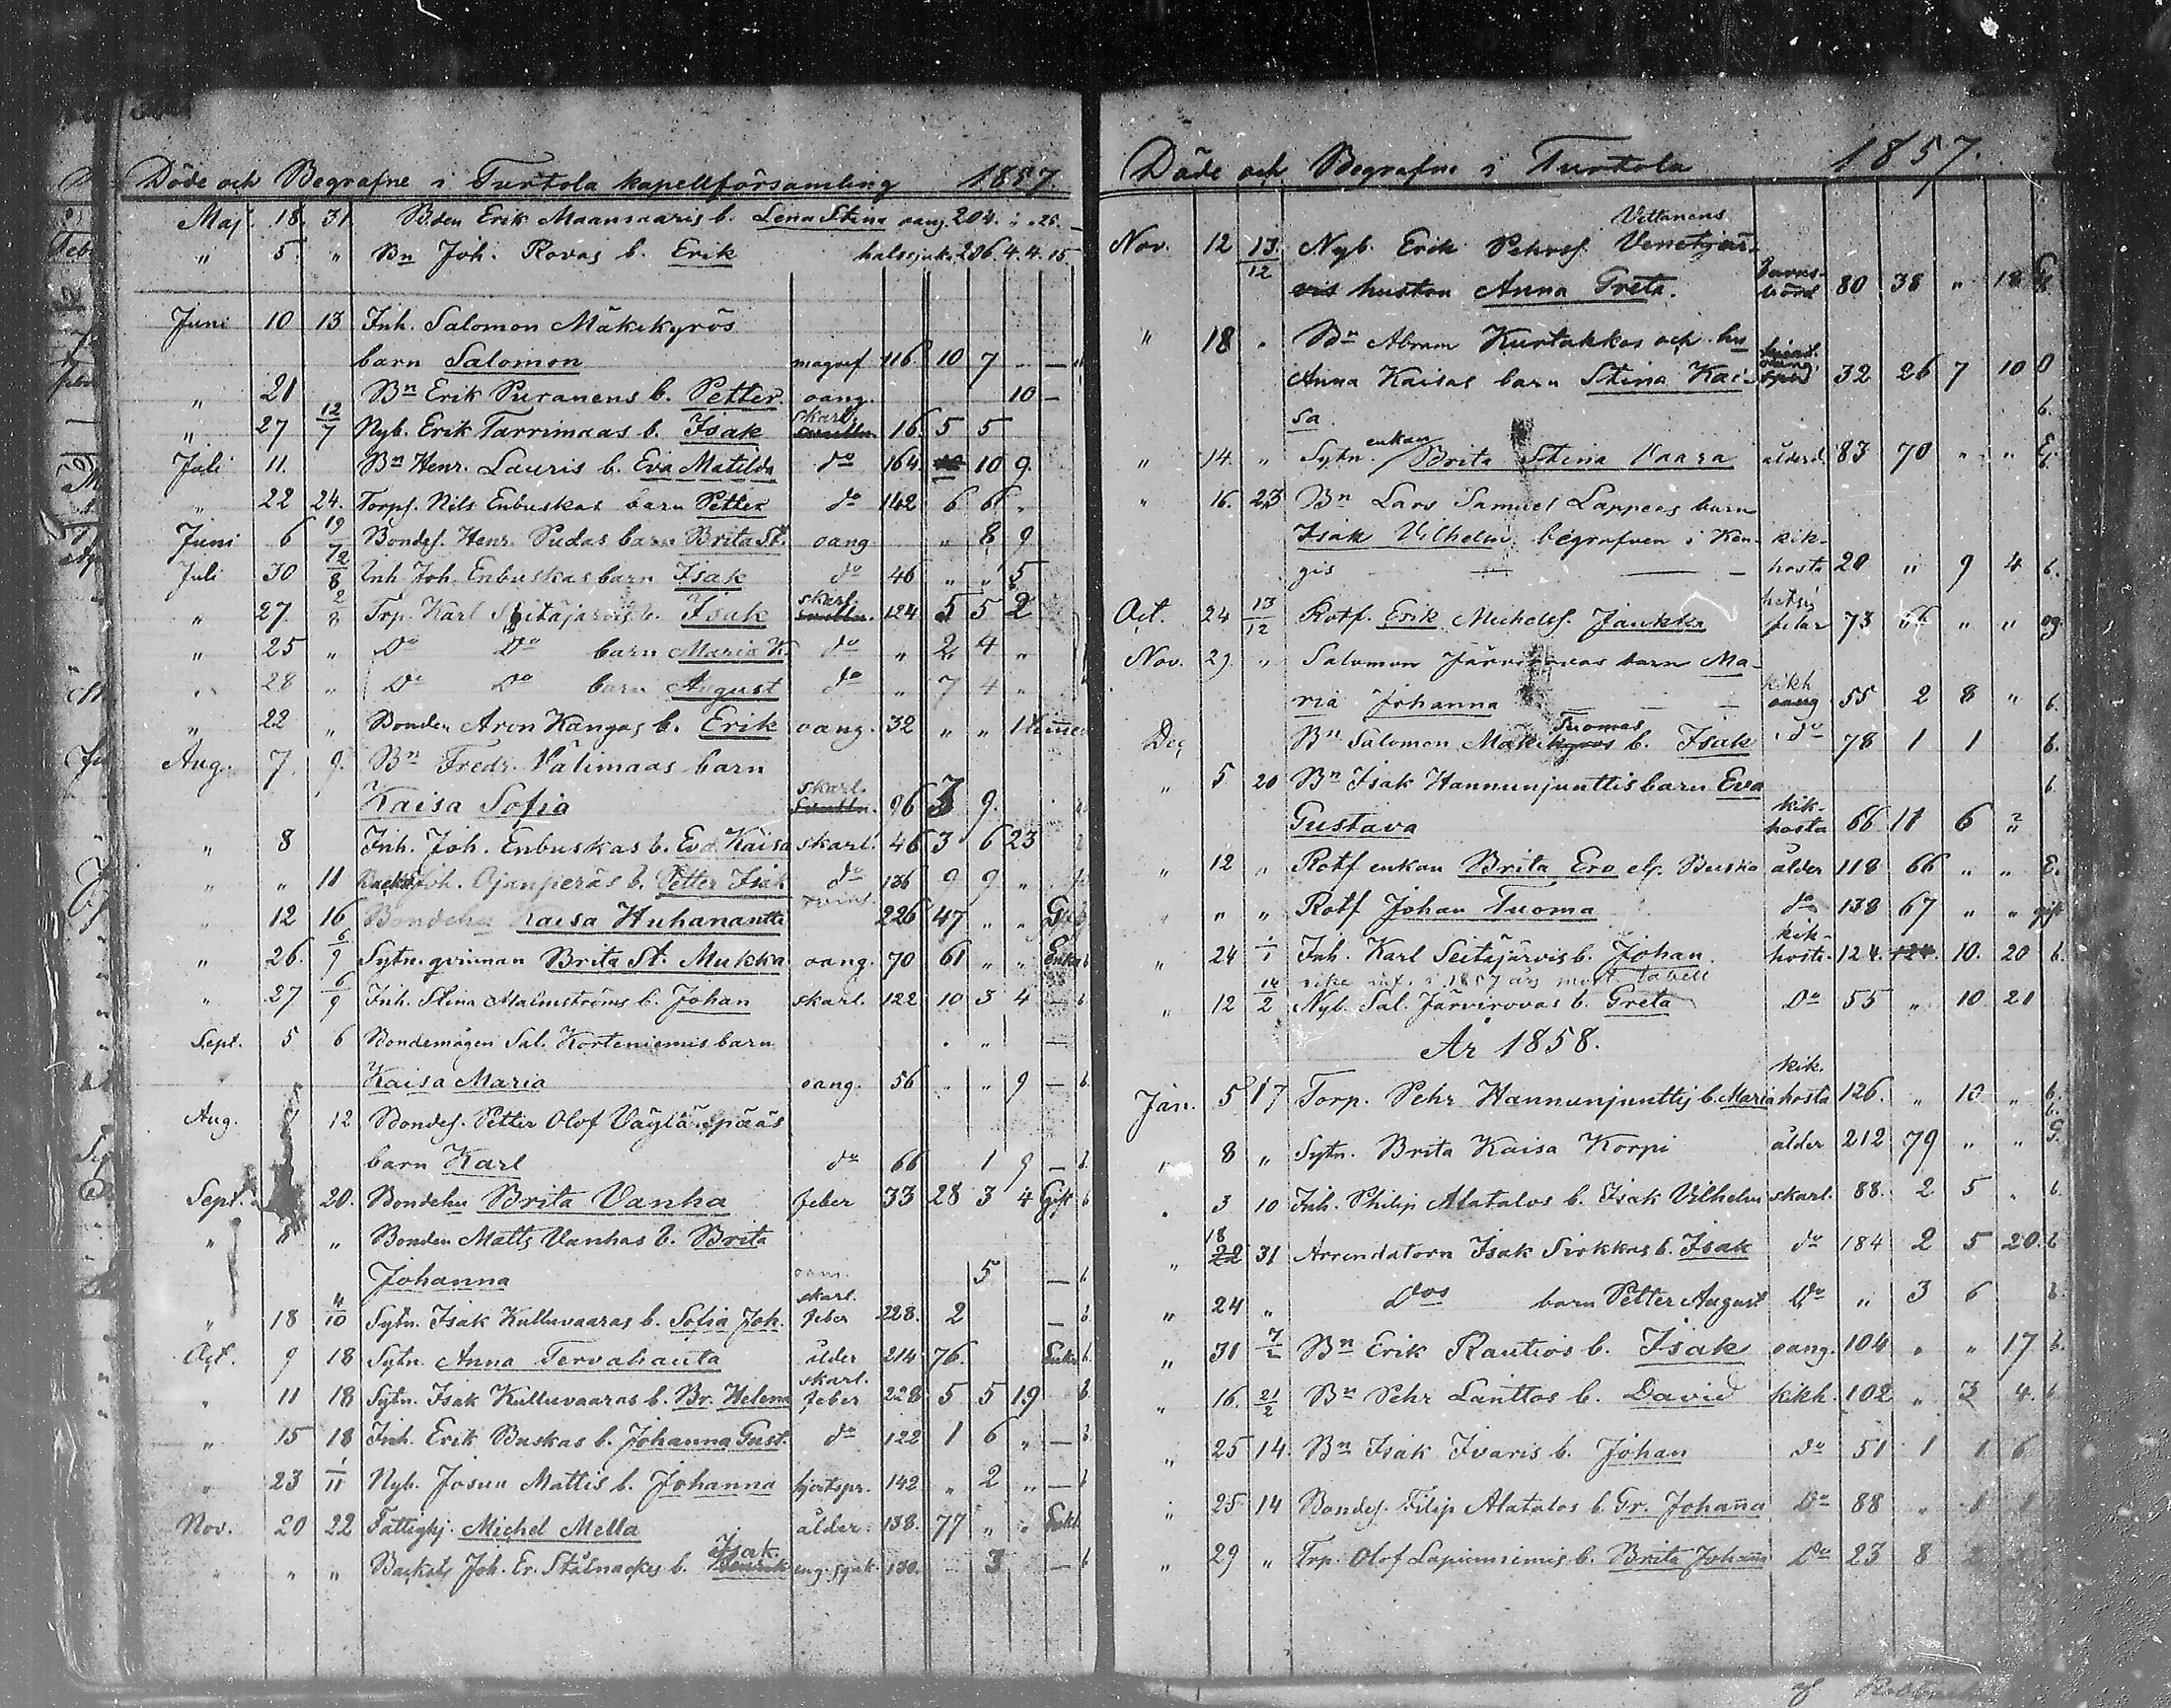 Döde och Begrafne i Turtola kapellförsamling 1857.
Maj 18. 31. Bden Erik Maansaaris b. Lena Stina oang. 204. " " 25. —
" 5. " Bn Joh. Rovas b. Erik halssjuk. 236 4. 4. 15
Juni 10 13 Inh. Salomon Mäkikyrös
barn Salomon magref 116 10 7 — —
" 21 Bn Erik Puranens b. Petter oang. 10 —
skarl.
" 27 12/7 Nyb. Erik Tarrimaas b. Isak 16. 5 5
Juli 11. Bn Henr. Lauris b. Eva Matilda do 164 10 9.
" 22 24. Torps. Nils Enbuskas barn Petter do 142 6 6 "
Juni 6 19/7 Bondes. Henr. Pudas barn Brita St. oang " 8 9
Juli 30 12/8 Inh Joh. Enbuskas barn Isak do 46 " " 5
skarl.
" 27. 2/8 Trp. Karl Seitäjärvis b. Isak 124 5 5 2
" 25 " Do Do barn Maria K. do " 2 4 "
" 28 " Do Do barn August do " 7 4 "
" 22 " Bonden Aron Kangas b. Erik oang. 32 " " 14
Aug. 7. 9. Bn Fredr. Välimaas barn
skarl.
Kaisa Sofia 96 3 9.
" 8 Inh. Joh. Enbuskas b. Eva Kaisa skarl. 46 3 6 23
" " 11 Joh. Ojanperäs b. Petter Isak do 136 9 9 "
" 12 16 Bondehu Kaisa Huhanantti 226 47 " "
" 26. 6/9 Sytn. qvinnan Brita St. Mukka oang. 70 61 " " Enka b
" 27 6/9 Inh. Stina Malmströms b. Johan skarl. 122 10 3 4 — b
Sept. 5 6 Bondemågen Sal. Korteniemis barn
Kaisa Maria oang. 56 " " 9 — b.
Aug. 7 12 Bondes. Petter Olof Väyläspääs
barn Karl do 66 1 9 — b.
Sept. 20. Bondehu Brita Vanha feber 33 28 3 4 Gift b
" 8 " Bonden Matts Vanhas b. Brita
Johanna oang. 5 — b
skarl.
" 18 4/10 Sytn. Isak Kulluvaaras b. Sofia Joh. feber 228. 2 — b.
Oct. 9 18 Sytn. Anna Tervahauta ålder 214 76. Enka b.
skarl.
" 11 18 Sytn. Isak Kulluvaaras b. Br. Helena feber 228 5 5 19 b.
" 15 18 Inh. Erik Buskas b. Johanna Gust. do 122 1 6 " — b.
" 23 1/11 Nyb. Josua Mattis b. Johanna hjertspr. 142 " 2 " — b
Nov. 20 22 Fattighj. Michel Mella ålder. 138. 77 " " Enkl
Isak
" " " Backst. Joh. Er. Stålnackes b. Henrik eng. sjuk. 130. 3 — b
Döde och Begrafne i Turtola 1857.
Vittanens
Nov. 12 13/12 Nyb. Erik Pehrss. Venetjär-
vis hustru Anna Greta. barns- börd 80 38 " 18 G
" 18 " Bn Abram Kurtakkos och hu
Anna Kaisas barn Stina Kai- 32 26 7 10 O
sa. b.
enkan
" 14. " Sytn. Brita Stina Vaara ålderd. 83 70 " " E.
" 16. 23 Bn Lars Samuel Lappeas barn
Isak Vilhelm begrafven i Kän- kik-
gis — — — hosta 20 " 9 4 b.
Oct. 24 13/12 Rotf. Erik Michelss. Jaukka hetsig feber 73 66 " " og.
Nov. 29. " Salomon Järvirovas barn Ma-
ria Johanna — — kikh oang 55 2 8 " b.
Tuomas
Dec Bn Salomon Mäkikyrös b. Isak do 78 1 1 b.
" 5 20 Bn Isak Hannunjunttis barn Eva b.
Gustava kik- hosta 66 11 6 "
" 12 " Rotf enkan Brita Ero elf. Buska ålder 118 66 " " E.
" " " Rotf Johan Tuoma do 138 67 " " gift
" 24 1/1 Inh. Karl Seitäjärvis b. Johan. kik- hosta. 124. 124. 10. 20 b.
icke inf. i 1857 års mort. tabell
" 12 14/2 Nyb. Sal. Järvirovas b. Greta Do 55 " 10 21
År 1858.
Jan. 5 17 Torp. Pehr Hannunjunttis b. Maria kik. hosta 126. " 10 " b.
" 8 " Sytn. Brita Kaisa Korpi ålder 212 79 " " G.
" 3 10 Inh. Philip Alatalos b. Isak Vilhelm skarl. 88. 2 5 " b.
18
" 22 31 Arrendatorn Isak Sirkkas b. Isak do 184 2 5 20. b
" 24 " Dos barn Petter August Do " 3 6 b.
" 31 7/2 Bn Erik Rautios b. Isak oang. 104 " " 17 b.
" 16. 21/2 Bn Pehr Lanttos b. David kikh. 102 " 3 4. b
" 25 14. Bn Isak Ivaris b. Johan do 51 1 1 6
" 25 14 Bondes. Filip Alatalos b. Gr. Johana Do 88 " 6
" 29 " Trp. Olof Lapinniemis b. Brita Johana Do 23 8 2
af